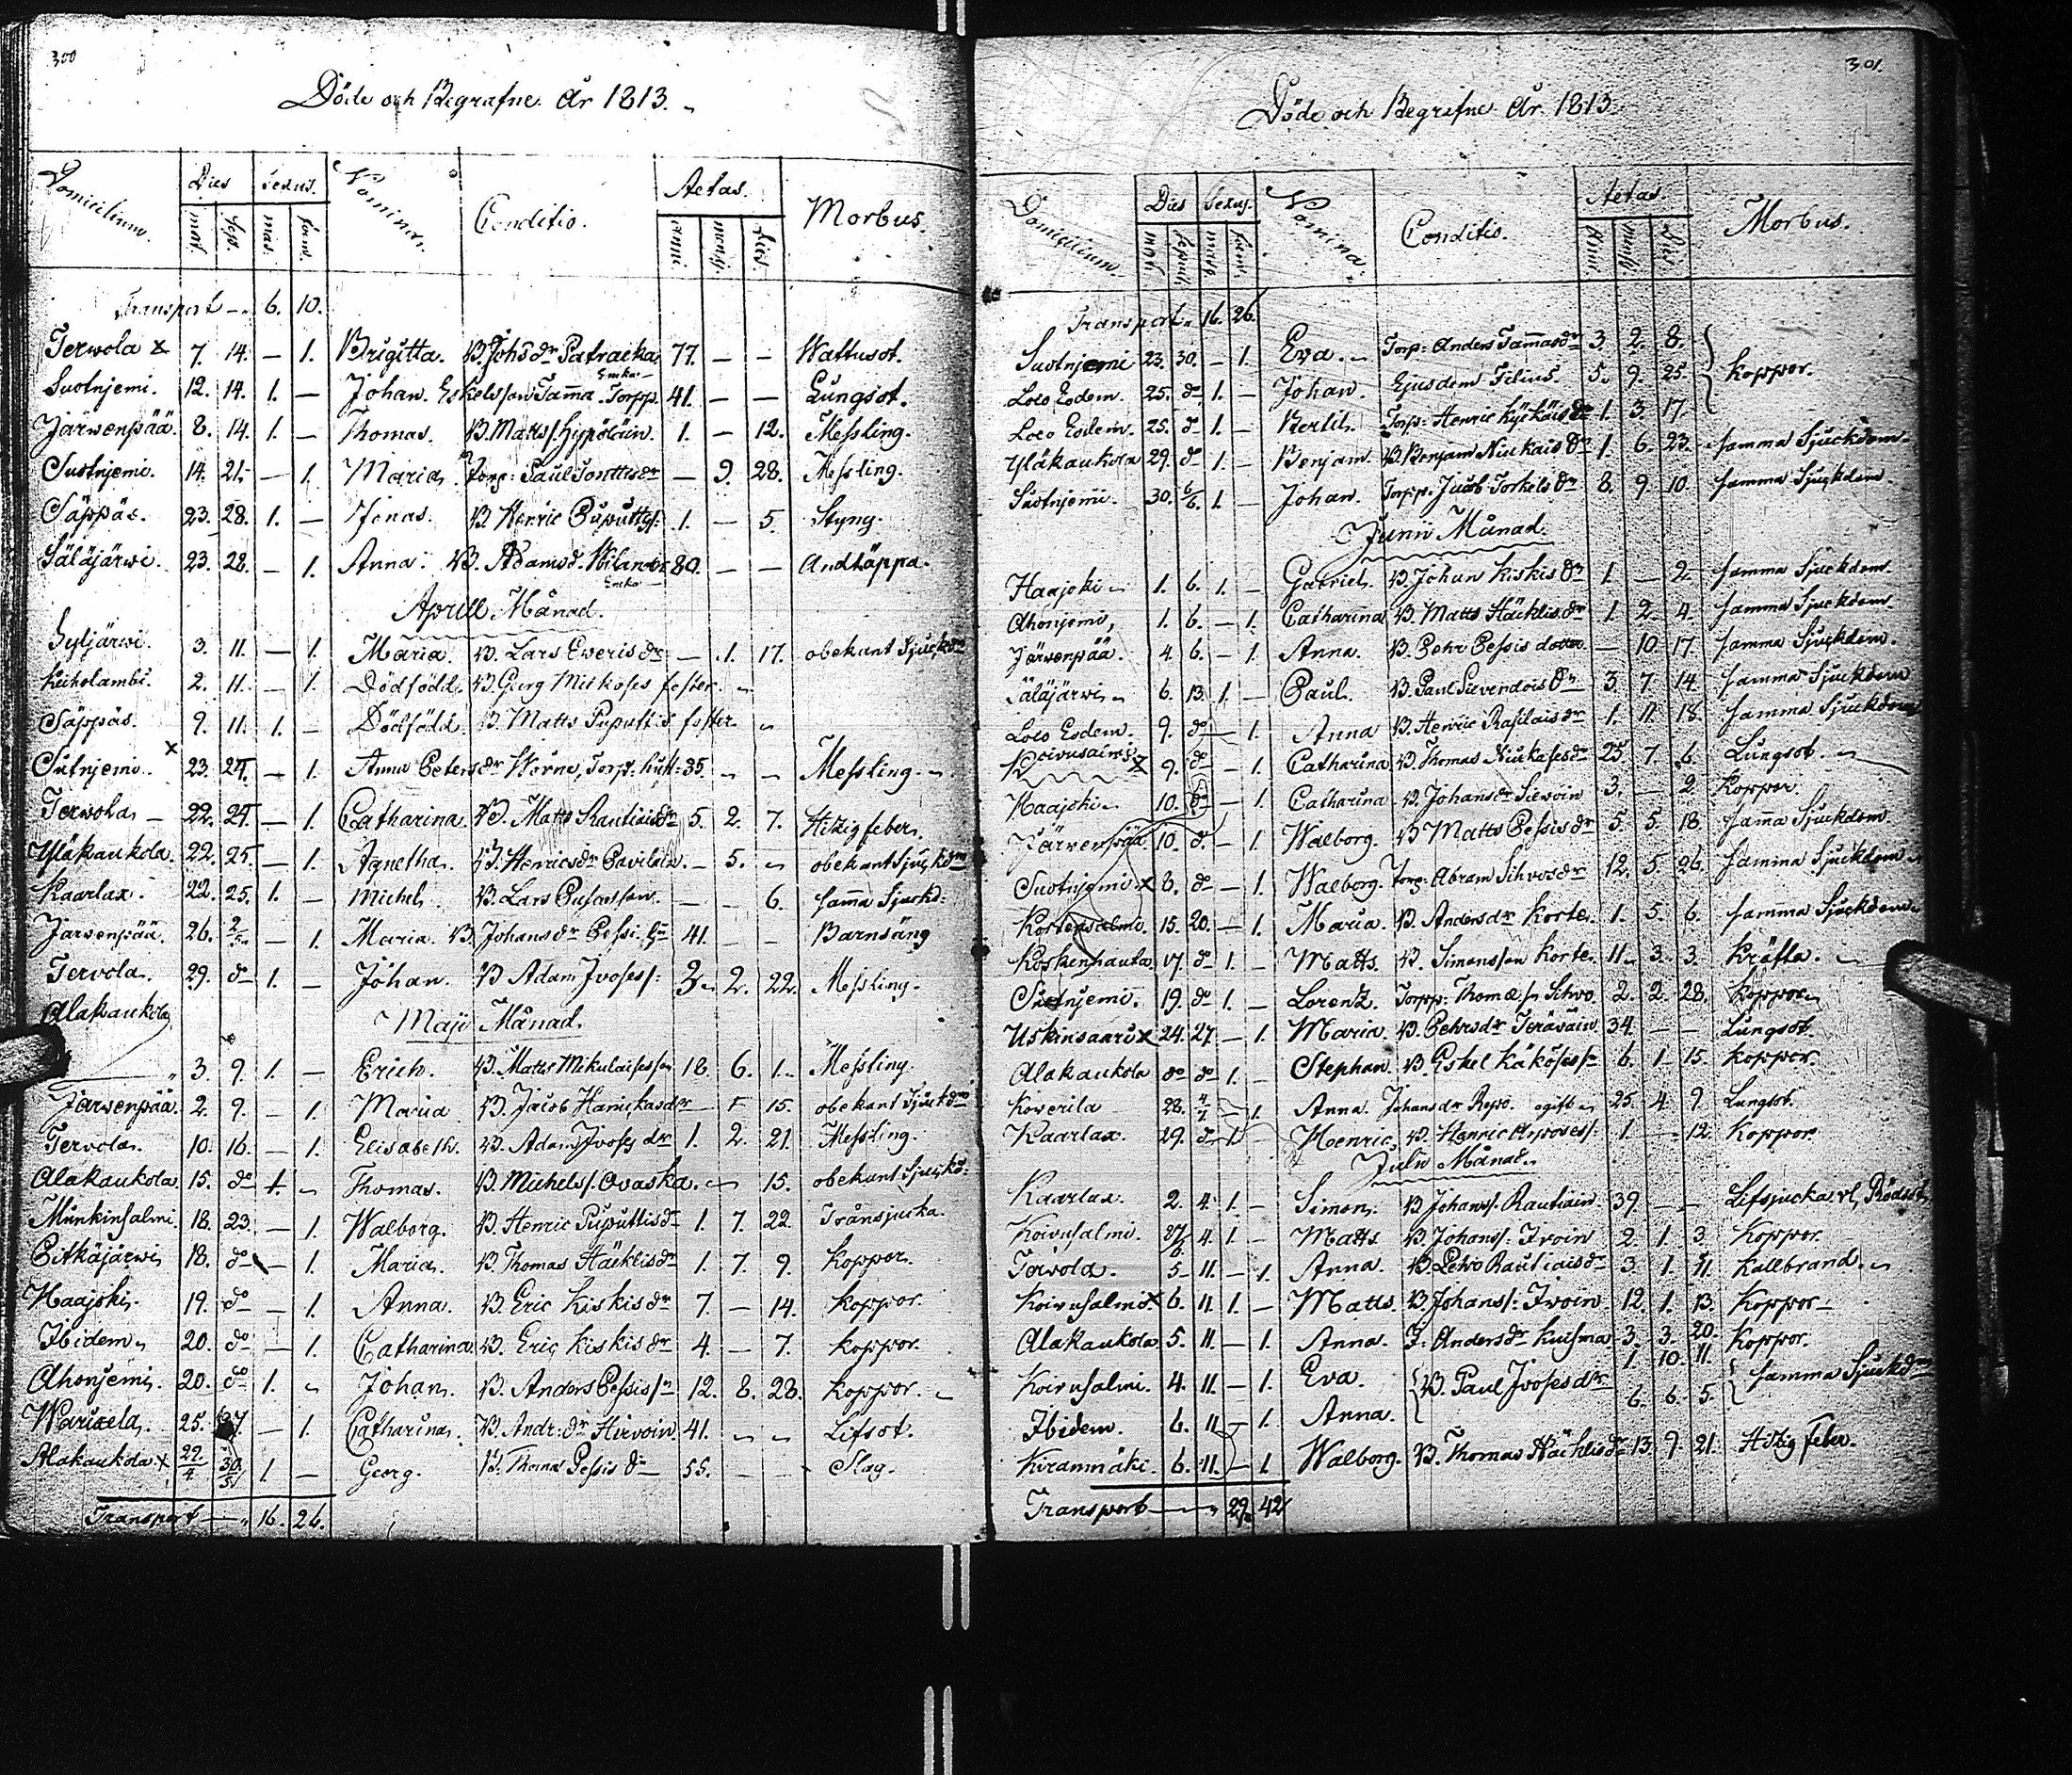 300
Döde och Begrafne År 1813.
Domicilium. Dies Sexus. Nomina. Conditio. Aetas. Morbus
mort. Sep. mas. fœm. anni. mens. dies.
Transport 6. 10.
Terwola x 7. 14. — 1. Brigitta. B. Johs dr Patracka 77. — — Wattusot.
Enka
Suotnjemi. 12. 14. 1. — Johan. Eskelsson Tamma. Torpp. 41. — — Lungsot.
Järwenpää. 8. 14. 1. — Thomas. B. Matts s. Hypöläin. 1. — 12. Messling.
Suotnjemi. 14. 21. — 1. Maria. Torp: Paul Tonttis dr — 9. 28. Messling.
Säppäs. 23. 28. 1. — Jonas. B. Henric Puputtis s: 1. — 5. Styng.
Säläjärwi. 23. 28. — 1. Anna. B. Adamsd. 80. — — Andtäppa.
Enka
Aprill Månad.
Syljärwi. 3. 11. — 1. Maria. B. Lars Eweris dr — 1. 17. obekant Sjuckdm
2. 11. — 1. Dödfödd. B. Georg Mickoses foster.
Säppäs. 9. 11. 1. — Dödfödd. B. Matts Puputtis foster
Sutnjemi. x 23. 27. — 1. Anna Petersdr Worne, Torp: hust: 35. Messling.
Terwola — 22. 27. — 1. Catharina. B. Matts Rautiais dr 5. 2. 7. Hitzig feber.
Yläkaukola. 22. 25. — 1. Agnetha. B. Henricsdr Pavilain. — 5. obekant Sjuckdm
Kaarlax. 22. 25. 1. — Michel. B. Lars Pusasson. — — 6. samma Sjuckd:
Järwenpää. 26. 2/5 — 1. Maria. B. Johansdr Pessi. 41. — — Barnsäng
Tervola. 29. do 1. — Johan. B. Adam Ivoses s: 3. 2. 22. Messling.
Alakaukola
Maji Månad.
3. 9. 1. — Erich. B. Matts Mikulaises son 18. 6. 1. Messling.
Järwenpää. 2. 9. — 1. Maria B. Jacob Hanickas dr — 15. obekant Sjuckdm
Tervola. 10. 16. — 1. Elisabeth. B. Adam Ivoses dr 1. 2. 21. Messling.
Alakaukola 15. do 1. Thomas. B. Michels s. Ovaska. 15. obekant Sjuckd:
Munkinsalmi. 18. 23. — 1. Walborg. B. Henric Puputtis dr 1. 7. 22. Trånsjucka.
Pitkäjärwi 18. do — 1. Maria. B. Thomas Häcklis dr 1. 7. 9. Koppor.
Haajoki. 19. do — 1. Anna. B. Eric Kiskis dr 7. — 14. Koppor.
Ibidem 20. do — 1. Catharina. B. Eric Kiskis dr 4. — 7. Koppor.
Ahonjemi. 20. do 1. Johan. B. Anders Pessis s:n 12. 8. 28. Koppor.
25. 27. — 1. Catharina. B. Andr: dr Hirvoin 41. Lifsot.
Alakaukola x 22/4 30/5 1 — Georg. B. Thoma Pessis 55. — — Slag.
Transport 16. 26.
301.
Döde och Begrafne År 1813.
Domicilium. Dies Sexus. Nomina. Conditio. Aetas. Morbus.
mort. sepult. masc. fœm. Anni. mens. Dies.
Transport 16. 26.
Suotnjemi 23. 30. — 1. Eva. Torp: Anders Tammas dr 3. 2. 8.
Loco Eodem. 25. do 1. — Johan. Ejusdem Filius. 5. 9. 25. Koppor.
Loco Eodem. 25. d 1. — Bertil. Torp: Henric 1. 3. 17.
Yläkaukola 29. do 1. — Benjam. B. Benjam Niukais 1. 6. 23. samma Sjuckdom
Suotnjemi 30. 6/6 1. — Johan. Torpp. Jacob Torkels 8. 9. 10. samma Sjuckdom
Junii Månad.
Haajoki 1. 6. 1. — Gabriel. B. Johan Kiskis 1. — 2. samma Sjuckdom
Ahonjemi, 1. 6. — 1. Catharina B. Matts Häcklis dr 1. 2. 4. samma Sjuckdom
Järwenpää. 4. 6. — 1. Anna. B. Pehr Pessis dotter — 10 17 samma Sjuckdom.
Säläjärwi 6. 13. 1. — Paul. B. Paul Siwendois 3. 7. 14. samma Sjuckdom
Loco Eodem. 9. do — 1. Anna B. Henric Rasilais dr 1. 11. 18. samma Sjuckdom
Koivusaimi x 9. do — 1. Catharina B. Thomas Niukases dr 25. 7. 6. Lungsot.
Haajoki 10. do — 1. Catharina B. Johansdr Siewöin 3. — 2. Koppor.
Järvenpää 10. d. — 1. Walborg. B. Matts Pessis dr 5. 5. 18. samma Sjuckdom
Suotnjemi x 8. do — 1. Walborg. Torp: Abram Sihvos dr 12. 5. 26. samma Sjuckdom
Kortensalmi. 15. 20. — 1. Maria. B. Andersdr Korte. 1. 5. 6. samma Sjuckdom
Koskenhauta 17. do 1. — Matts. B. Simonsson Korte. 11. 3. 3. Kräfta.
Suotnjemi. 19. do 1. — Lorenz. Torpp: Thomæ sn Sihvo 2. 2. 28. Koppor
Uskinsaari x 24. 27. — 1. Maria. B. Pehrsdr Teräväin 34. — — Lungsot.
Alakaukola do do 1. — Stephan. B. Eskel Käköses sn 6. 1. 15. Koppor.
Kowerila 28. 4/7 — 1. Anna. Johansdr Repo. ogift 25. 4. 9. Lungsot.
Kaarlax. 29. d 1. Henric. B. Henric Arposes s: 1. — 12. Koppor
Julii Månad.
Kaarlax. 2. 4. 1. — Simon. B. Johans s. Rautiain. 39. — — Lifsjucka vl, Rödsot
Koivusalmi. 27/6 4. 1. — Matts B. Johans s: Ivoin 2. 1. 3. Koppor.
Terwola. 5. 11. — 1. Anna. B. Petro Rautiais dr 3. 1. 11. Kallbrand.
Koivusalmi x 6. 11. 1. — Matts. B. Johans s: Ivoin 12. 1. 13. Koppor
Alakaukola 5. 11. — 1. Anna. I. Andersdr Kuisma 3. 3. 20. Koppor.
Koivusalmi. 4. 11. — 1. Eva. B. Paul Ivoses dr 1. 10. 11. samma Sjuckdm
Ibidem. 6. 11 — 1. Anna. 6. 6. 5.
Kiranmäki. 6. 11. — 1. Walborg. B. Thomas Häcklis dr 13. 9. 21. Hitzig Feber.
Transport 29. 42